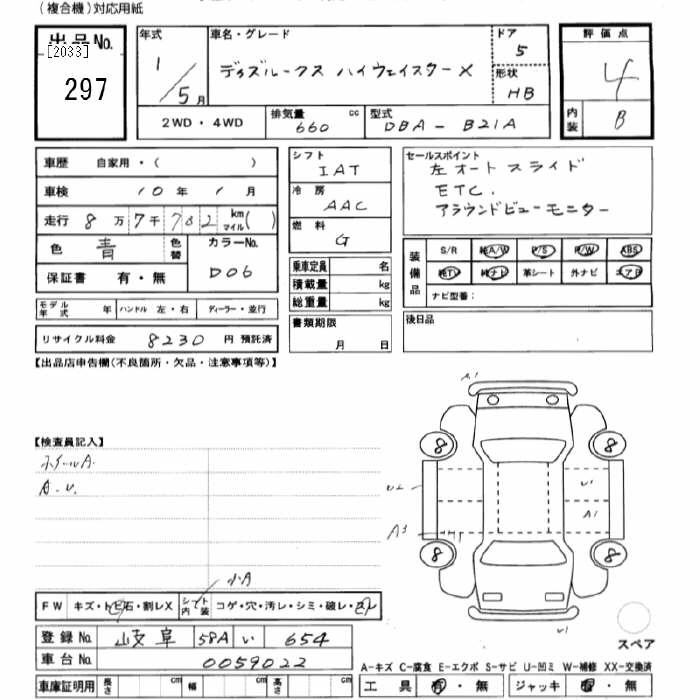 (複合機)対応用紙
出品No.
[2033]
297
年式
1/5月
車名・グレード
デイズルークス ハイウェイスターX
ドア
5
形状
HB
2WD・4WD
排気量 660 cc
型式
DBA-B21A
評価点
4
内装 B
車歴 自家用・( )
車検 10年 1月
走行 8万7千782 km マイル( )
色 青 色替
カラーNo.
D06
保証書 有・無
モデル年式 年 ハンドル 左・右 ディーラー・並行
リサイクル料金 8230 円 預託済
シフト
IAT
冷房
AAC
燃料
G
乗車定員 名
積載量 kg
総重量 kg
書類期限
月 日
セールスポイント
左オートスライド
ETC.
アラウンドビューモニター
装備品
S/R 純A/W P/S P/W ABS
純TV 純ナビ 革シート 外ナビ エアB
ナビ型番:
後日品
【出品店申告欄(不良箇所・欠品・注意事項等)】
【検査員記入】
ホイールA.
A.U.
小A
FW キズ・トビ石・割レX
シート内装 コゲ・穴・汚レ・シミ・破レ・スレ
A1
8
8
U2
U1
A1
A3
8
8
U1
スペア
登録No. 岐阜 58A い 654
車台No. 0059022
車庫証明用 長さ cm 幅 cm 高さ cm
A−キズ C−腐食 E−エクボ S−サビ U−凹ミ W−補修 XX−交換済
工具 有・無 ジャッキ 有・無